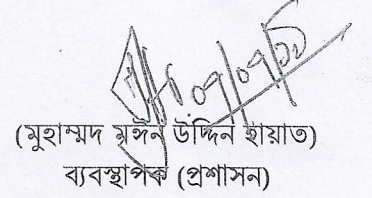 ০৭/০৭/১১
(মুহাম্মদ মঈন উদ্দিন হায়াত)
ব্যবস্থাপক (প্রশাসন)